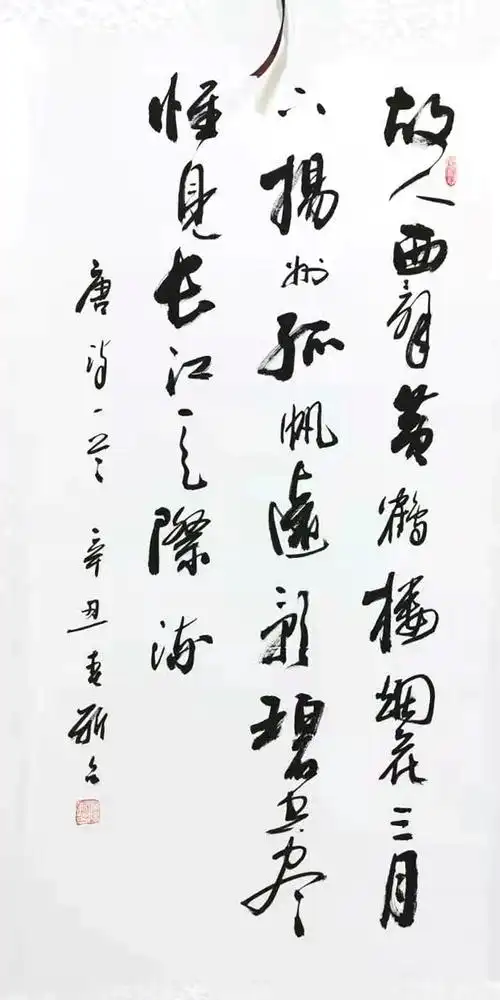 故人西辞黄鹤楼烟花三月
下揚州孤帆遠影碧空尽
惟見长江天際流
唐诗一首 辛丑春